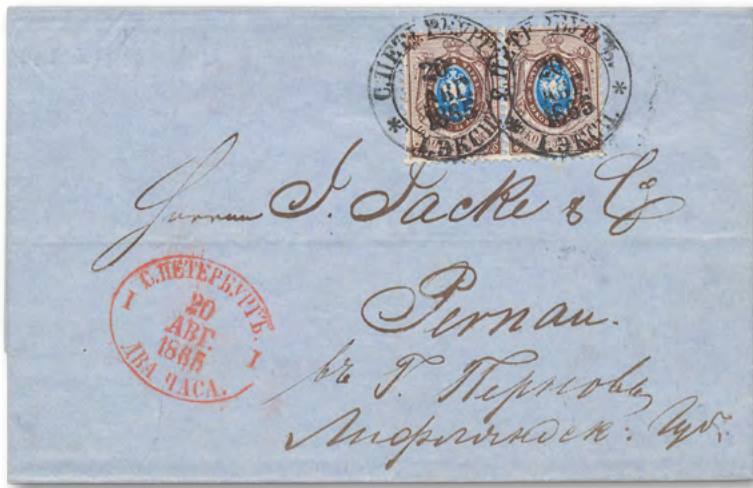 С.ПЕТЕРБУРГЪ.
20
АВГ.
1865
1. ЭКСП.
С.ПЕТЕРБУРГЪ.
20
АВГ.
1865
1. ЭКСП.
Herren J. Jacke & Co
Pernau.
въ Г. Перновъ
Лифляндск: Губ:
С.ПЕТЕРБУРГЪ.
I I
20
АВГ.
1865
ДВА ЧАСА.